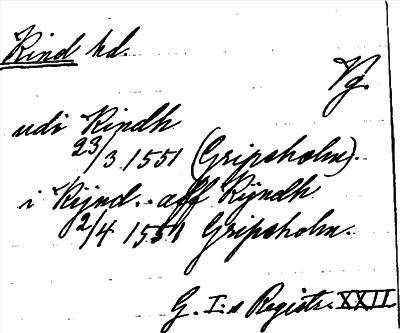 Kind hd.
Vg.
udi Kindh
23/3 1551 (Gripsholm).
i Kijnd. aff Kijndh
2/4 1551 Gripsholm.
G. I:s Registr. XXII